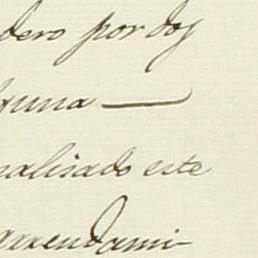 dero por dos
guna
nalisado este
arrendami